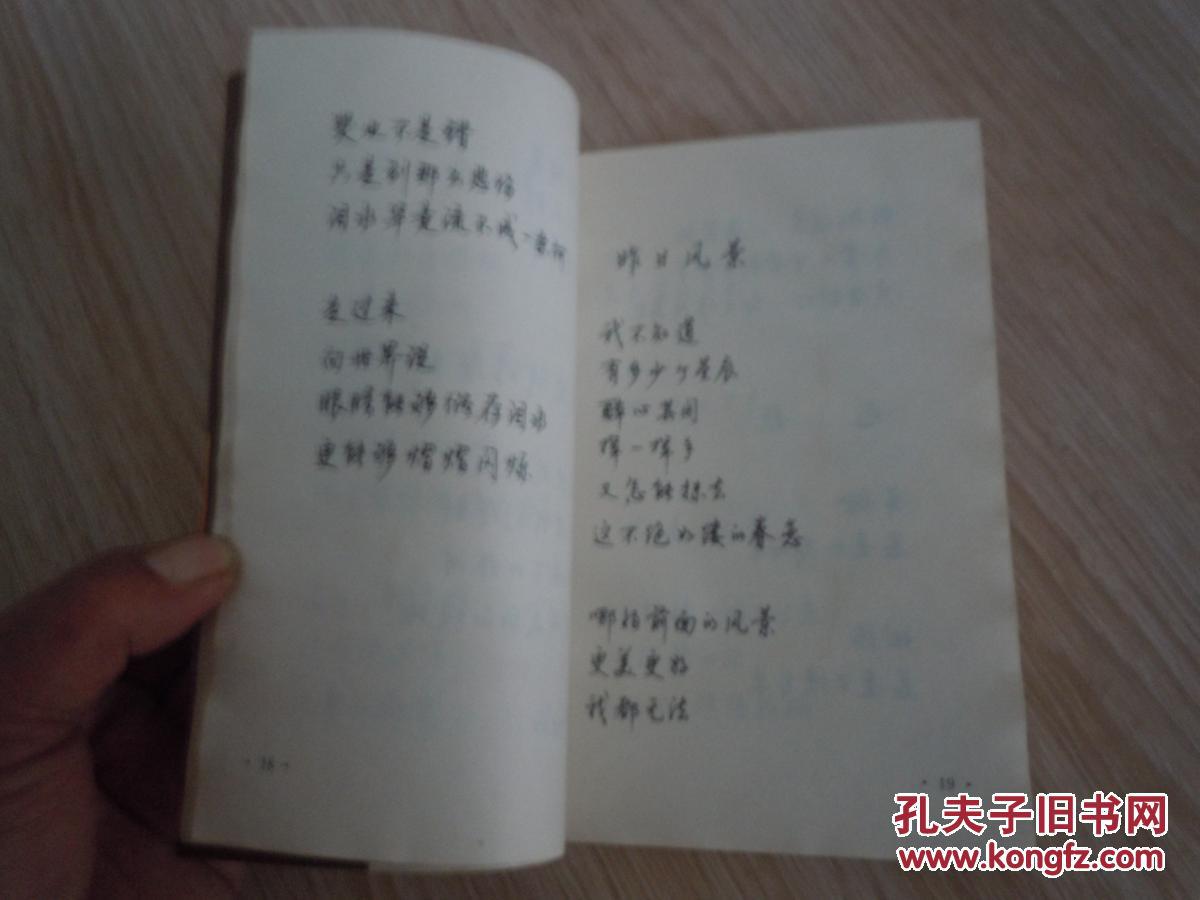 哭也不是错
只是别那么悲伤
泪水毕竟流不成一条河
走过来
向世界说
眼睛能够储存泪水
更能够熠熠闪烁
· 18 ·
昨日风景
我不知道
有多少个星辰
醉心其间
挥一挥手
又怎能抹去
这不绝如缕的眷恋
哪怕前面的风景
更美更好
我都无法
· 19 ·
孔夫子旧书网
www.kongfz.com